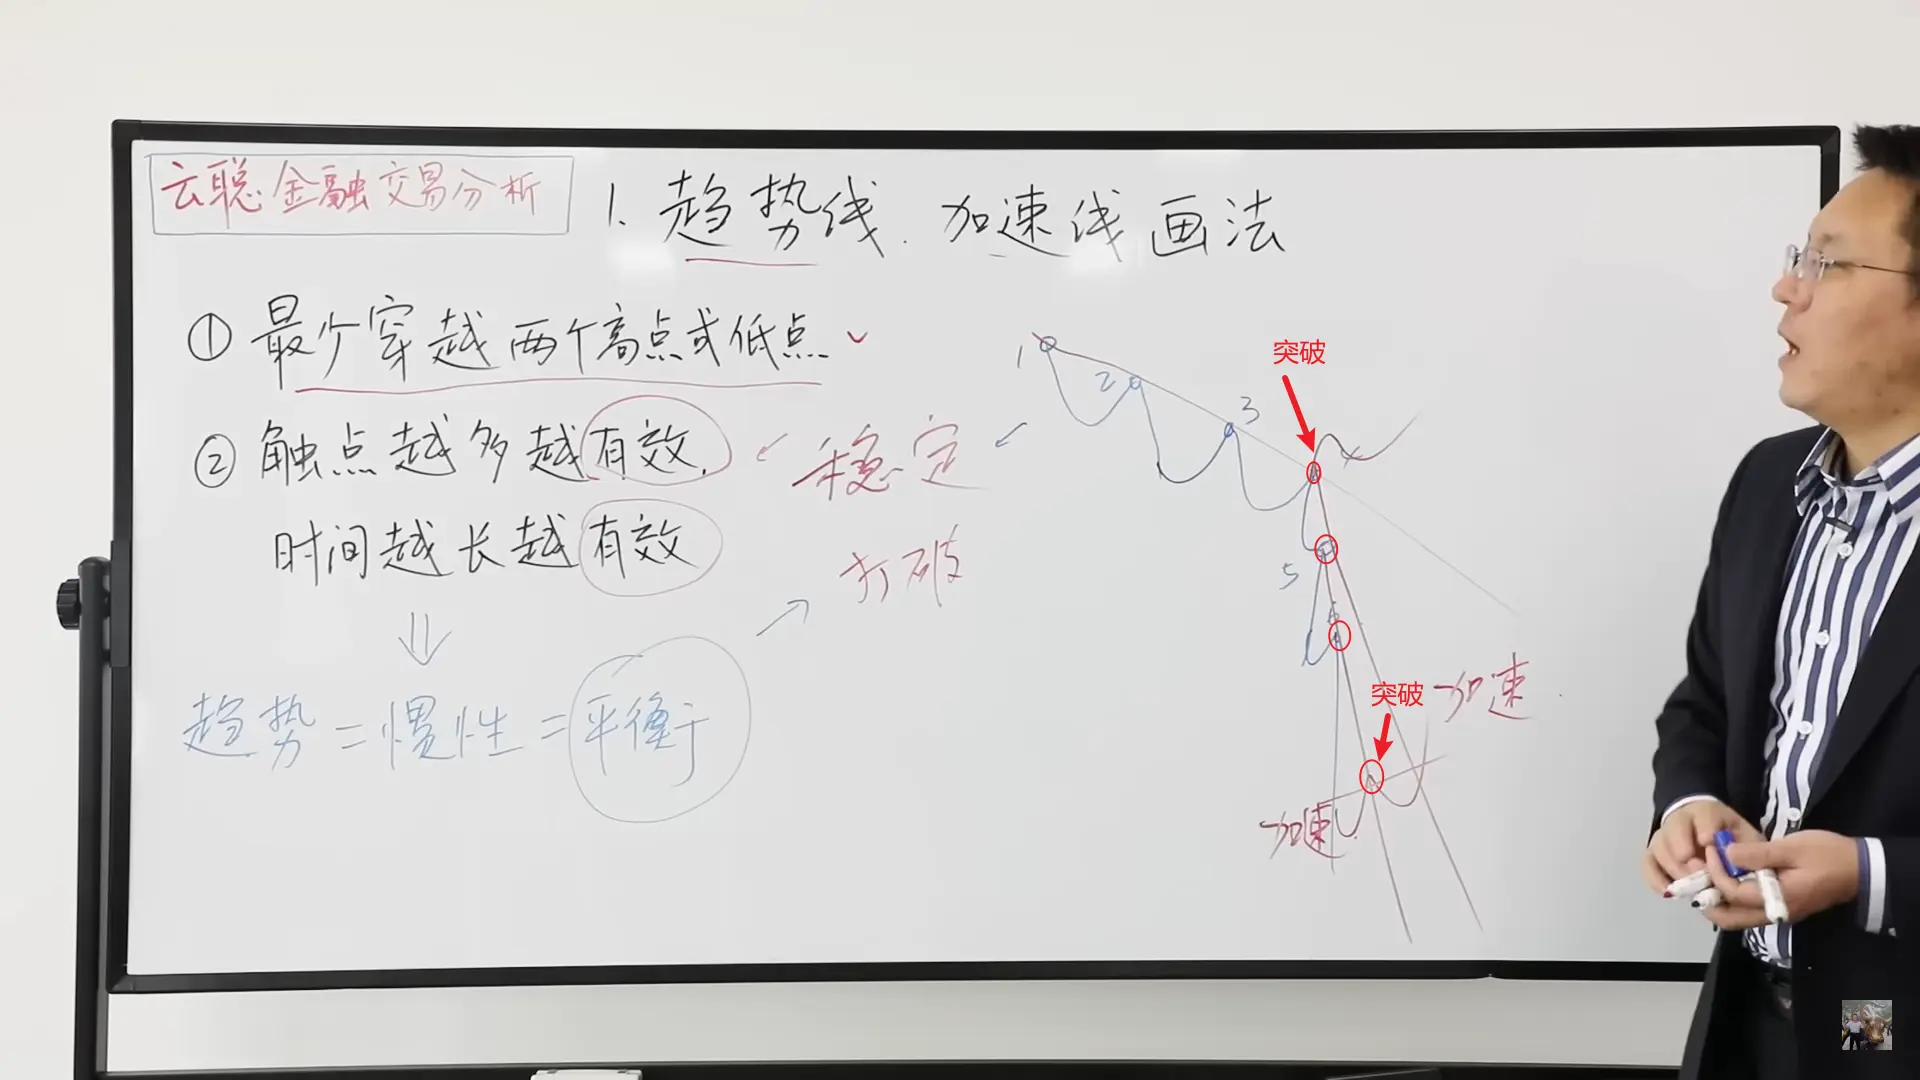 云聪金融交易分析
1. 趋势线.加速线画法
① 最少穿越两个高点或低点
② 触点越多越有效.
时间越长越有效
趋势=惯性=平衡
稳定
打破
1
2
3
突破
5
6
突破
加速
加速